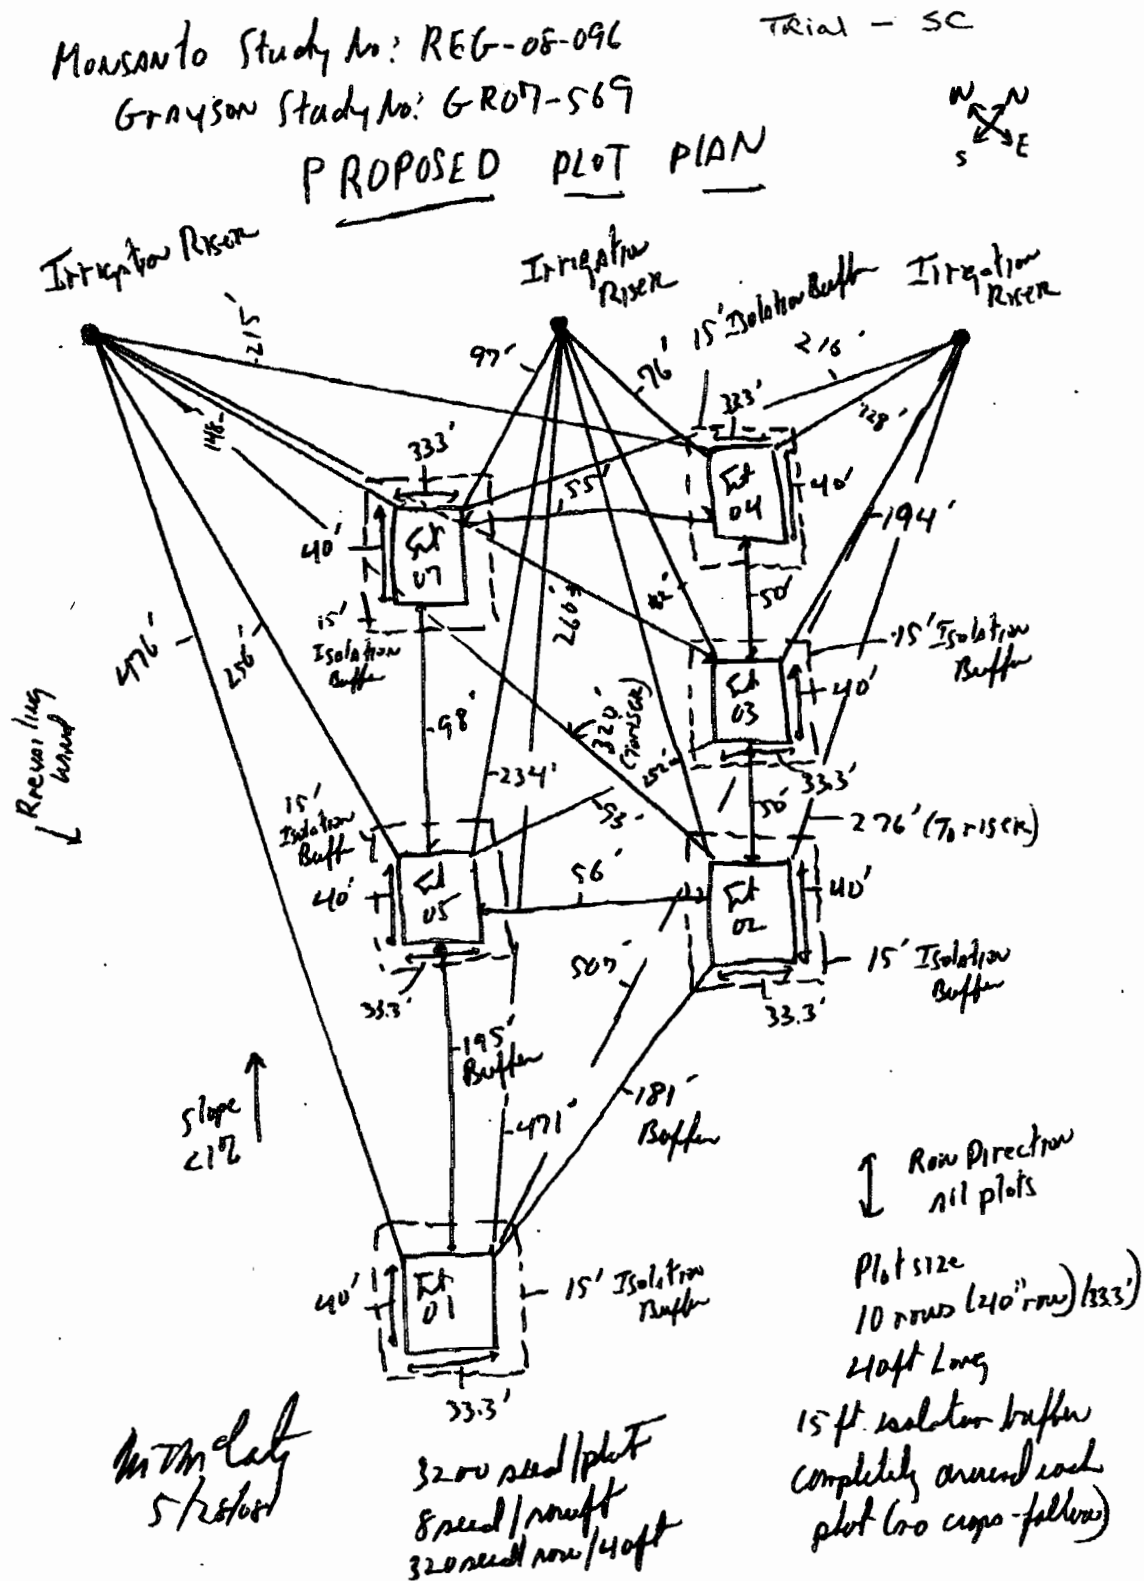 Monsanto Study No: REG-08-096
Trial - SC
Grayson Study No: GR07-569
W N
S E
PROPOSED PLOT PLAN
Irrigation Riser
Irrigation
Riser
Irrigation
Riser
15' Isolation Buffer
215'
97'
76'
216'
128'
148'
33.3'
33.3'
55'
40'
194'
40'
Trt
04
Trt
07
50'
260'
82'
15'
Isolation
Buffer
15' Isolation
Buffer
476'
256'
40'
Trt
03
98'
320'
(To riser)
252'
33.3'
Prevailing
Wind
234'
93'
50'
276' (To riser)
15'
Isolation
Buffer
56'
40'
Trt
05
Trt
02
40'
33.3'
507'
15' Isolation
Buffer
33.3'
195'
Buffer
Slope
<1%
471'
181'
Buffer
Row Direction
all plots
40'
Trt
01
15' Isolation
Buffer
33.3'
Plot size
10 rows (40" row) (33.3')
40ft Long
15 ft. isolation buffer
completely around each
plot (no crops-fallow)
5/28/08
3200 seed/plot
8 seed/row ft
320 seed row/40ft